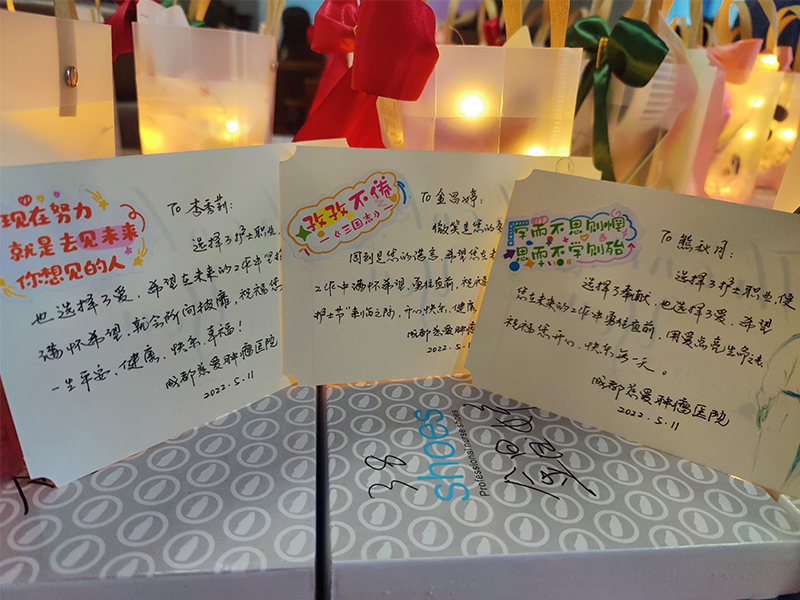 现在努力
就是去见未来
你想见的人
To 李秀莉:
选择了护士职业
也选择了爱,希望在未来的工作中坚
满怀希望,就会所向披靡,祝福您
一生平安、健康、快乐、幸福!
成都慈爱肿瘤医院
2022.5.11
孜孜不倦
—《三国志》
To 金昌婷:
微笑是您的
周到是您的
工作中满怀希望,勇往直前,祝福
护士节"来临之际,开心快乐,健康
成都慈爱肿瘤
2022.5.
学而不思则惘
思而不学则殆
To 熊秋月:
选择了护士职业,便
选择了奉献,也选择了爱,希望
您在未来的工作中勇往直前,用爱点亮生命之
祝福您开心、快乐每一天。
成都慈爱肿瘤医院
2022.5.11
38
shoes
Professional nurse shoes